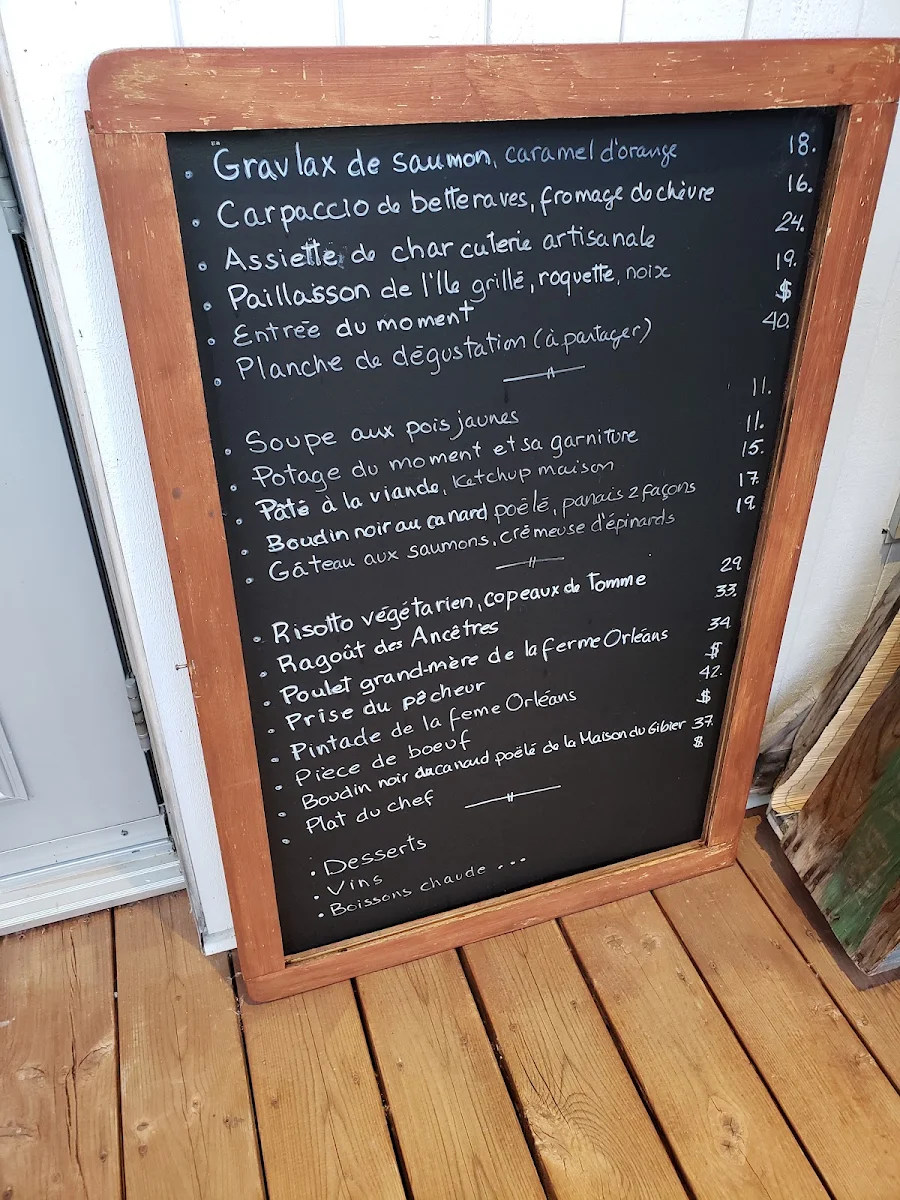 • Gravlax de saumon, caramel d'orange 18.
• Carpaccio de betteraves, fromage de chèvre 16.
• Assiette de charcuterie artisanale 24.
• Paillasson de l'Ile grillé, roquette, noix 19.
• Entrée du moment $
• Planche de dégustation (à partager) 40.
• Soupe aux pois jaunes 11.
• Potage du moment et sa garniture 11.
• Pâté à la viande, Ketchup maison 15.
• Boudin noir au canard poëlé, panais 2 façons 17.
• Gâteau aux saumons, crémeuse d'épinards 19.
• Risotto végétarien, copeaux de Tomme 29.
• Ragoût des Ancêtres 33.
• Poulet grand-mère de la ferme Orléans 34.
• Prise du pêcheur $
• Pintade de la feme Orléans 42.
• Pièce de boeuf $
• Boudin noir du canaud poëlé de la Maison du Gibier 37.
• Plat du chef $
• Desserts
• Vins
• Boissons chaude ...